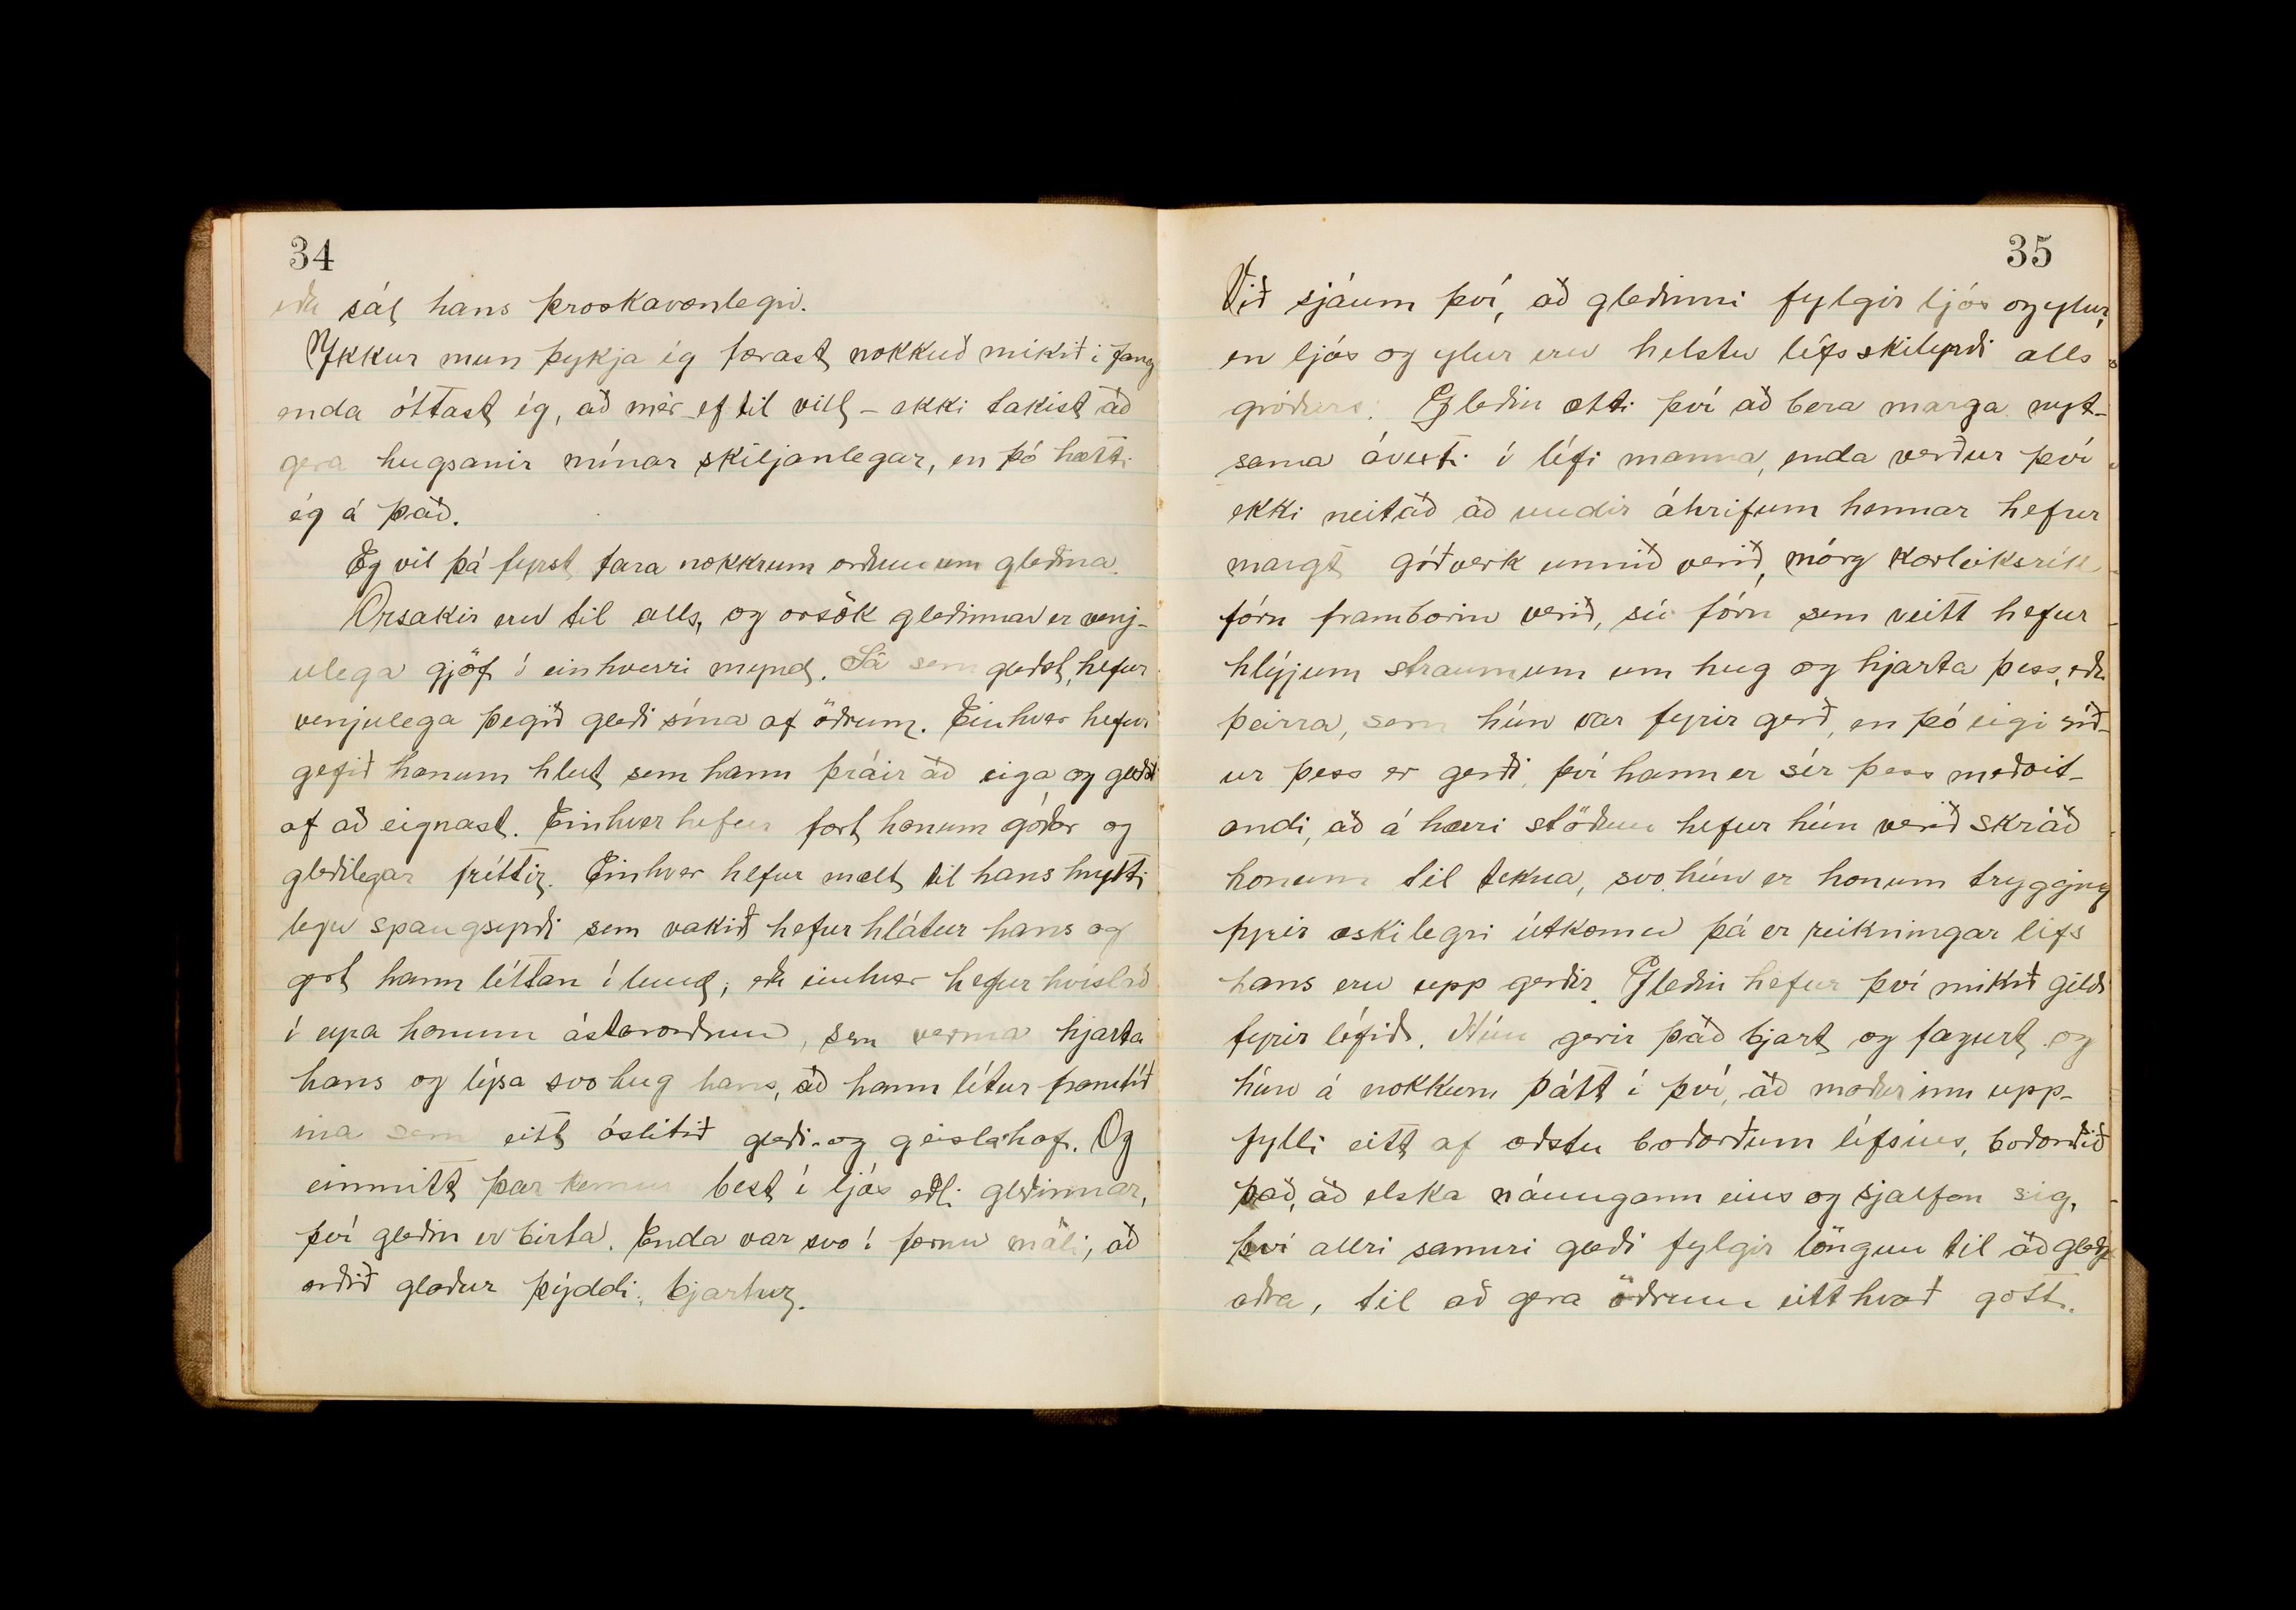 34
eða sál hans þroskavænlegri.
Ykkur mun þykja ég færast nokkuð mikið í fang
enda óttast ég, að mér - ef til vill - ekki takist að
gera hugsanir mínar skiljanlegar, en þó hætti
ég á það.
Eg vil þá fyrst fara nokkrum orðum um gleðina.
Orsakir eru til alls, og orsök gleðinnar er venj-
ulega gjöf í einhverri mynd. Sá sem gleðst, hefur
venjulega þegið gleði sína af öðrum. Einhver hefur
gefið honum hlut sem hann þráir að eiga og gleðst
af að eignast. Einhver hefur fært honum góðar og
gleðilegar fréttir. Einhver hefur mælt til hans hnytti
legu spaugsyrði sem vakið hefur hlátur hans og
gert hann léttan í lund, eða einhver hefur hvíslað
í eyra honum ástarorðum, sem verma hjarta
hans og lýsa svo hug hans, að hann lítur framtíð
ina sem eitt óslitið gleði- og geislahaf. Og
einmitt þar kemur best í ljós eðli gleðinnar,
því gleðin er birta. Enda var svo í fornu máli, að
orðið glaður þýddi: bjartur.
35
Við sjáum því, að gleðinni fylgir ljós og ylur,
en ljós og ylur eru helstu lífsskilyrði alls
gróðurs. Gleðin ætti því að bera marga nyt-
sama ávexti í lífi manna, enda verður því
ekki neitað að undir áhrifum hennar hefur
margt góðverk unnið verið, mörg kærleiksrík
fórn framborin verið, sú fórn sem veitt hefur
hlýjum straumum um hug og hjarta þess, eða
þeirra, sem hún var fyrir gerð, en þó eigi síð-
ur þess er gerði, því hann er sér þess meðvit-
andi, að á hærri stöðum hefur hún verið skráð
honum til tekna, svo hún er honum trygging
fyrir æskilegri útkomu þá er reikningar lífs
hans eru upp gerðir. Gleðin hefur því mikið gildi
fyrir lífið. Hún gerir það bjart og fagurt og
hún á nokkurn þátt í því, að maðurinn upp-
fylli eitt af æðstu boðorðum lífsins, boðorðið
það, að elska náungann eins og sjálfan sig,
því allri sannri gleði fylgir löngun til að gleðja
aðra, til að gera öðrum eitthvað gott.